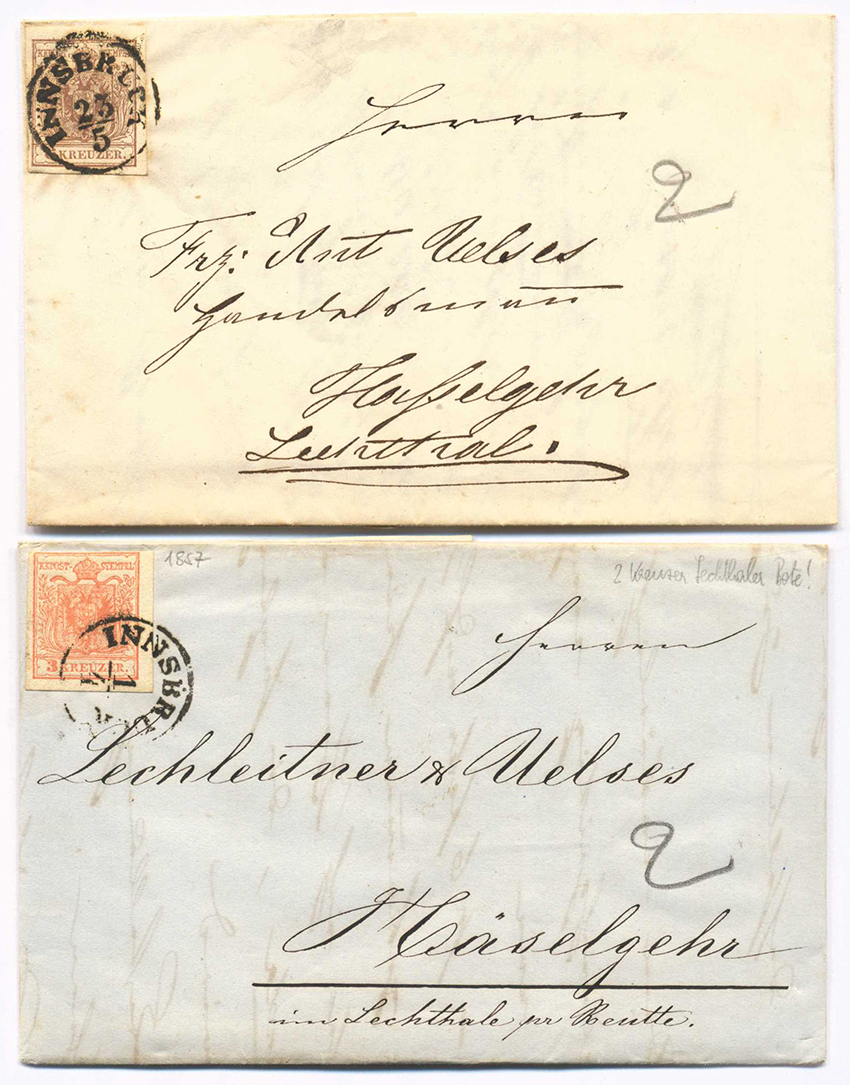 INNSBRUCK
23/5
KREUZER.
Herrn
2
Frz: Ant Uelses
Handelsmann
Hasselgehr
Lechthal.
1857
2 Kreuzer Lechthaler Bote!
KKPOST-STEMPEL
3 KREUZER.
INNSBRU
1
Herren
Lechleitner & Uelses
2
Häselgehr
im Lechthale pr Reutte.